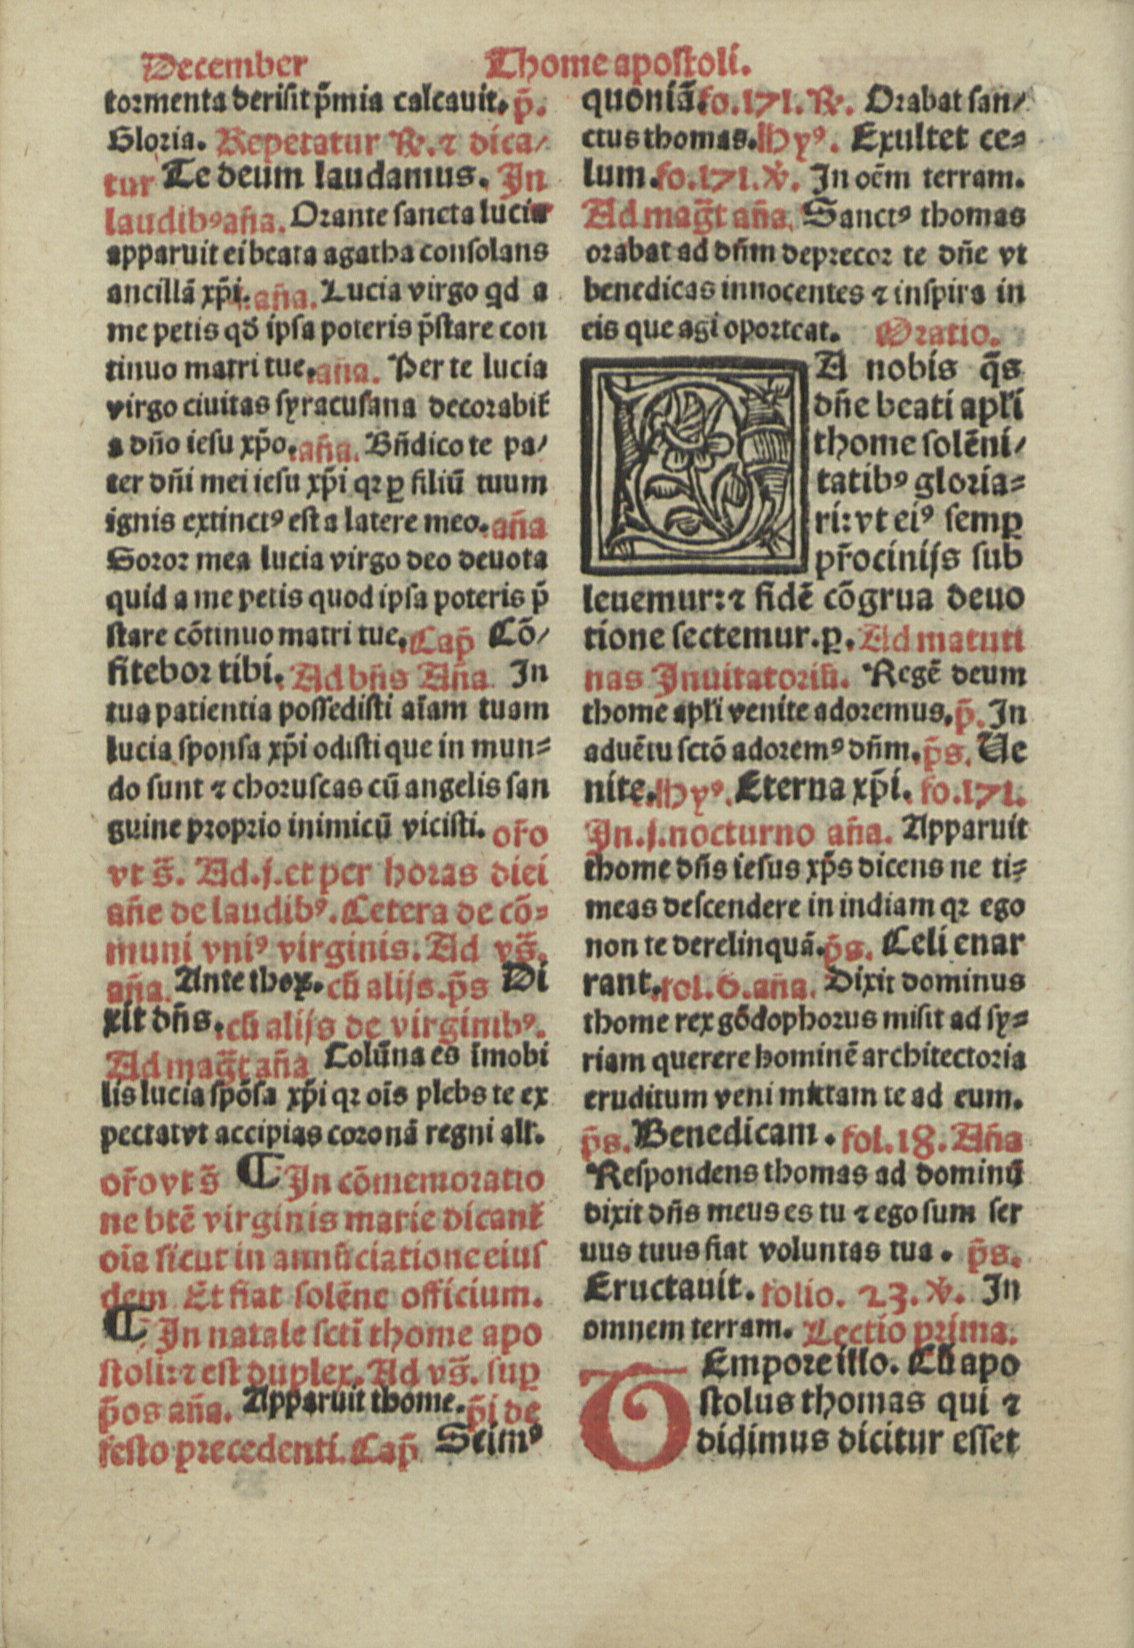 December
Thome apostoli.
tormenta derisit p̄mia calcauit. p̄.
Gloria. Repetatur ℟. ⁊ dica/
tur Te deum laudamus. In
laudibꝰ aña. Orante sancta lucia
apparuit ei beata agatha consolans
ancillā xp̄i. aña. Lucia virgo qd a
me petis qđ ipsa poteris p̄stare con
tinuo matri tue. aña. Per te lucia
virgo ciuitas syracusana decorabit̄
a dño iesu xp̄o. aña. Bñdico te pa/
ter dñi mei iesu xp̄i qꝛ ꝑ filiū tuum
ignis extinctꝰ est a latere meo. aña
Soror mea lucia virgo deo deuota
quid a me petis quod ipsa poteris p̄
stare cōtinuo matri tue. Cap̄ Cō/
fitebor tibi. Ad bñs Aña. In
tua patientia possedisti aīam tuam
lucia sponsa xp̄i odisti que in mun-
do sunt ⁊ choruscas cū angelis san
guine proprio inimicū vicisti. or̄o
vt s̄. Ad .j. et per horas diei
añe de laudibꝰ. Cetera de cō-
muni vniꝰ virginis. Ad vs̄.
aña. Ante thoꝝ. cū alijs. p̄s Di
xit dñs. cū alijs de virginibꝰ.
Ad mag̅t aña Colūna es īmobi
lis lucia spōsa xp̄i qꝛ oīs plebs te ex
pectat vt accipias coronā regni alr̄.
or̄o vt s̄ ¶ In cōmemoratio
ne btē virginis marie dicant̄
oīa sicut in annūciatione eius
dem Et fiat solēne officium.
¶ In natale scti thome apo
stoli: ⁊ est duplex. Ad vs̄. suꝑ
p̄os aña. Apparuit thome. p̄i de
festo precedenti. Cap̄ Scimꝰ
quoniā. fo. 171. ℟. Orabat san/
ctus thomas. Hyꝰ. Exultet ce-
lum. fo. 171. ℣. In oēm terram.
Ad mag̅t aña. Sanctꝰ thomas
orabat ad dñm deprecor te dñe vt
benedicas innocentes ⁊ inspira in
eis que agi oporteat. Oratio.
DA nobis q̄s
dñe beati apl̄i
thome solēni/
tatibꝰ gloria-
ri: vt eiꝰ semꝑ
pr̄ocinijs sub
leuemur: ⁊ fidē cōgrua deuo
tione sectemur. ꝑ. Ad matuti
nas Inuitatoriū. Regē deum
thome apl̄i venite adoremus. p̄. In
aduētu sctō adoremꝰ dñm. p̄s. Ue
nite. Hyꝰ. Eterna xp̄i. fo. 171.
In .j. nocturno aña. Apparuit
thome dñs iesus xp̄s dicens ne ti-
meas descendere in indiam qꝛ ego
non te derelinquā. p̄s. Celi enar
rant. fol. 6. aña. Dixit dominus
thome rex gōdophorus misit ad sy-
riam querere hominē architectoria
eruditum veni mittam te ad eum.
p̄s. Benedicam. fol. 18. Aña
Respondens thomas ad dominū
dixit dñs meus es tu ⁊ ego sum ser
uus tuus fiat voluntas tua. p̄s.
Eructauit. folio. 23. ℣. In
omnem terram. Lectio prima.
TEmpore illo. Cū apo
stolus thomas qui ⁊
didimus dicitur esset